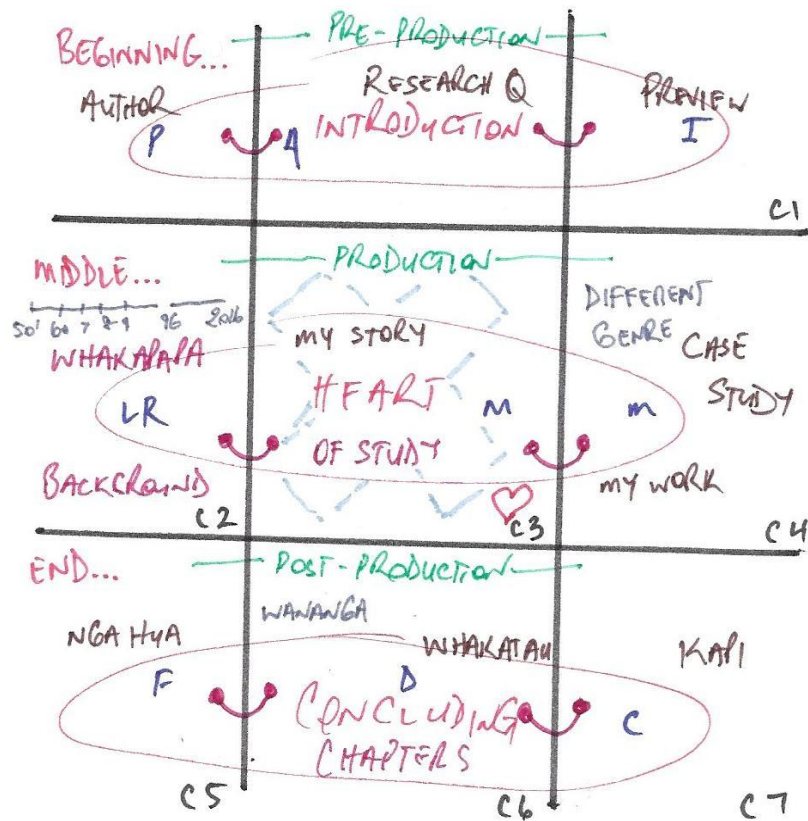 BEGINNING...
PRE-PRODUCTION
AUTHOR
RESEARCH Q
PREVIEW
P
A
INTRODUCTION
I
C1
MIDDLE...
PRODUCTION
50' 60 7 8 9 96 2016
DIFFERENT
GENRE
CASE
STUDY
WHAKAPAPA
MY STORY
LR
HEART
OF STUDY
M
M
BACKGROUND
MY WORK
C2
C3
C4
END...
POST-PRODUCTION
WANANGA
NGA HUA
WHAKATAU
KAPI
F
D
CONCLUDING
CHAPTERS
C
C5
C6
C7